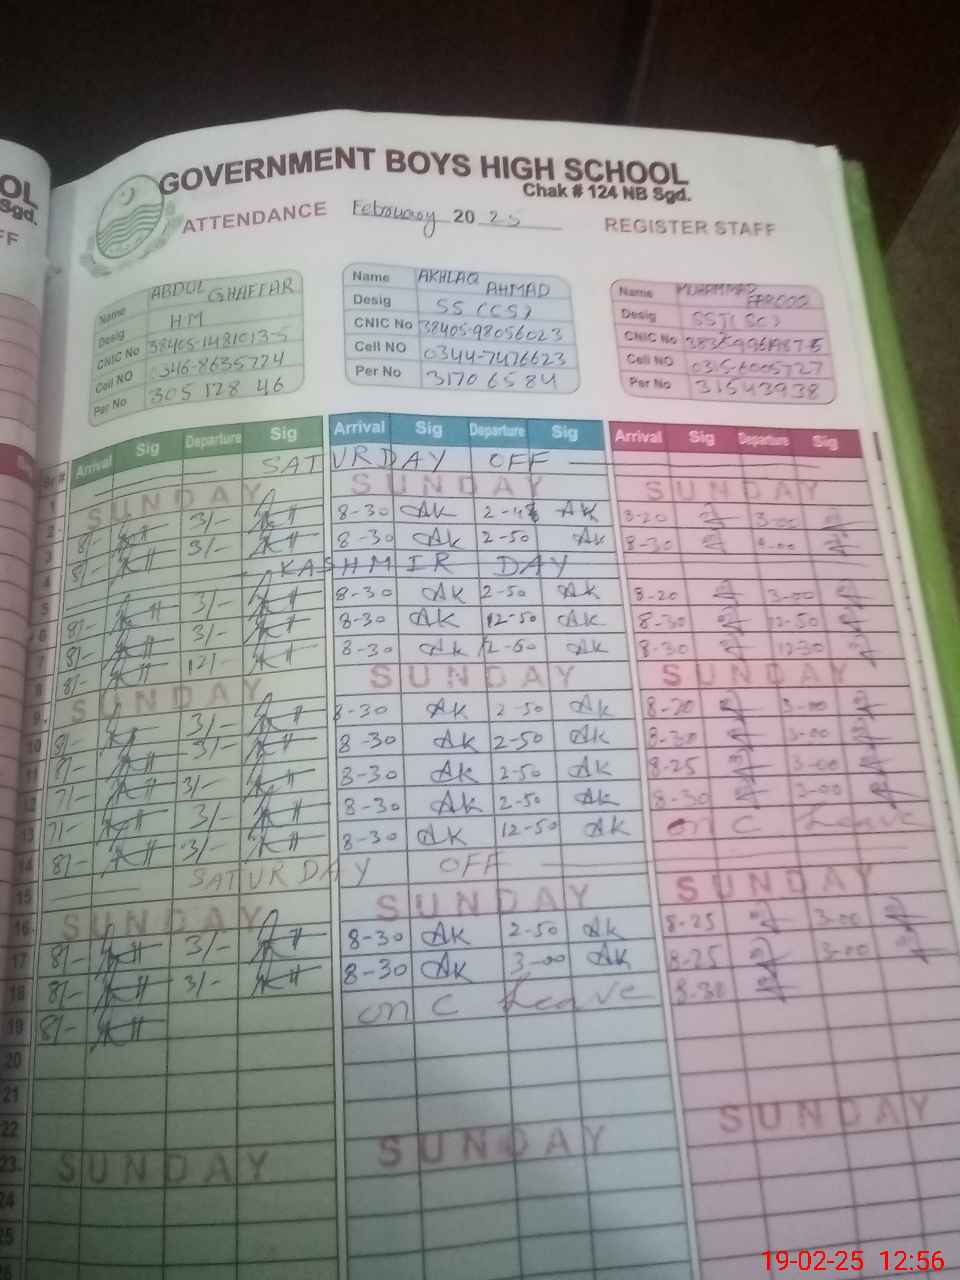 OL
Sgd.
FF
GOVERNMENT BOYS HIGH SCHOOL
Chak # 124 NB Sgd.
ATTENDANCE February 20 25 REGISTER STAFF
Name ABDUL GHAFFAR
Desig HM
CNIC No 38405-1481013-5
Cell NO 0346-8635724
Per No 305 128 46
Name AKHLAQ AHMAD
Desig SS (CS)
CNIC No 38405-98056023
Cell NO 0344-7476623
Per No 3170 65 84
Name MUHAMMAD FAROOQ
Desig SST (SC)
CNIC No
Cell NO 0315-6005727
Per No 31543938
Sr# Arrival Sig Departure Sig Arrival Sig Departure Sig Arrival Sig Departure Sig
1 SATURDAY OFF
2 SUNDAY SUNDAY SUNDAY
3 8/- 3/- 8-30 AK AK 8-20 3-00
4 8/- 3/- 8-30 AK 2-50 AK 8-30
5 KASHMIR DAY
6 8/- 3/- 8-30 AK 2-50 AK 8-20 3-00
7 8/- 3/- 8-30 AK 12-50 AK 8-30 12-50
8 8/- 12/- 8-30 AK AK 8-30 12-30
9 SUNDAY SUNDAY SUNDAY
10 8/- 3/- 8-30 AK 2-50 AK 8-20 3-00
11 3/- 8-30 AK 2-50 AK 8-30 3-00
12 7/- 3/- 8-30 AK 2-50 AK 8-25 3-00
13 7/- 3/- 8-30 AK 2-50 AK 8-30 3-00
14 8/- 3/- 8-30 AK 12-50 AK on C Leave
15 SATURDAY OFF
16 SUNDAY SUNDAY SUNDAY
17 8/- 3/- 8-30 AK 2-50 AK 8-25 3-00
18 8/- 3/- 8-30 AK 3-00 AK 8-25 3-00
19 8/- on C Leave 8-30
20
21
22
23 SUNDAY SUNDAY SUNDAY
24
25
19-02-25 12:56